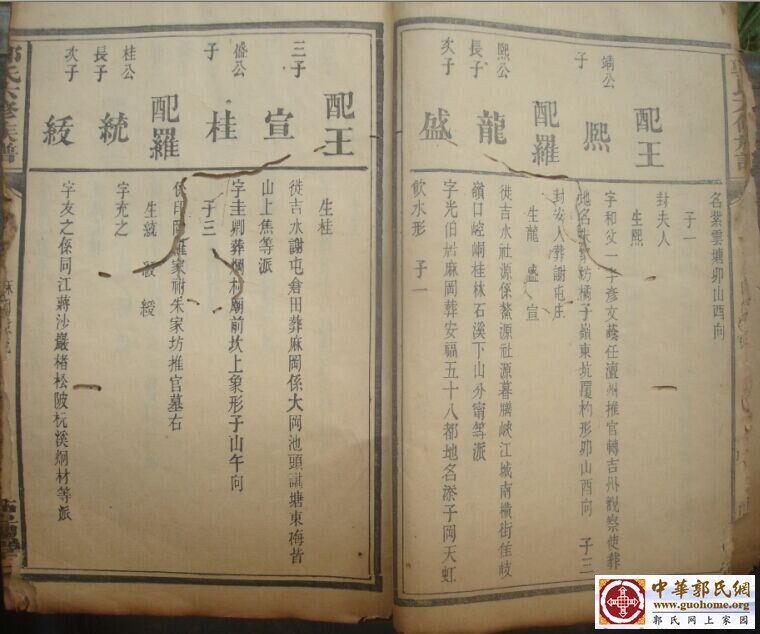 名紫雲壙卯山酉向
子一
配王
封夫人
生熙
靖公
子
熙
字和父一字彥文蔭任澶州推官轉吉州觀察使葬
地名朱家坊橘子嶺東坑覆杓形卯山酉向 子三
配羅
封安人葬謝屯庄
生龍 盛 宣
熙公
長子
龍
徙吉水社源係鰲源社源暮膳峽江城南橫街隹岐
嶺口崆峒桂林石溪下山分甯等派
次子
盛
字光伯居麻岡葬安福五十八都地名添子岡天虹
飲水形 子一
配王
生桂
三子
宣
徙吉水謝屯倉田葬麻岡係大岡池頭諶塘東梅皆
山上焦等派
盛公
子
桂
字圭卿葬爛村廟前坎上象形子山午向
子三
配羅
係印岡羅家祔朱家坊推官墓右
生統 綬
桂公
長子
統
字充之
次子
綬
字友之係同江蔣沙巖楮松陂杬溪烱材等派
郭氏六修族譜
中華郭氏網
www.guohome.org
郭氏網上家園